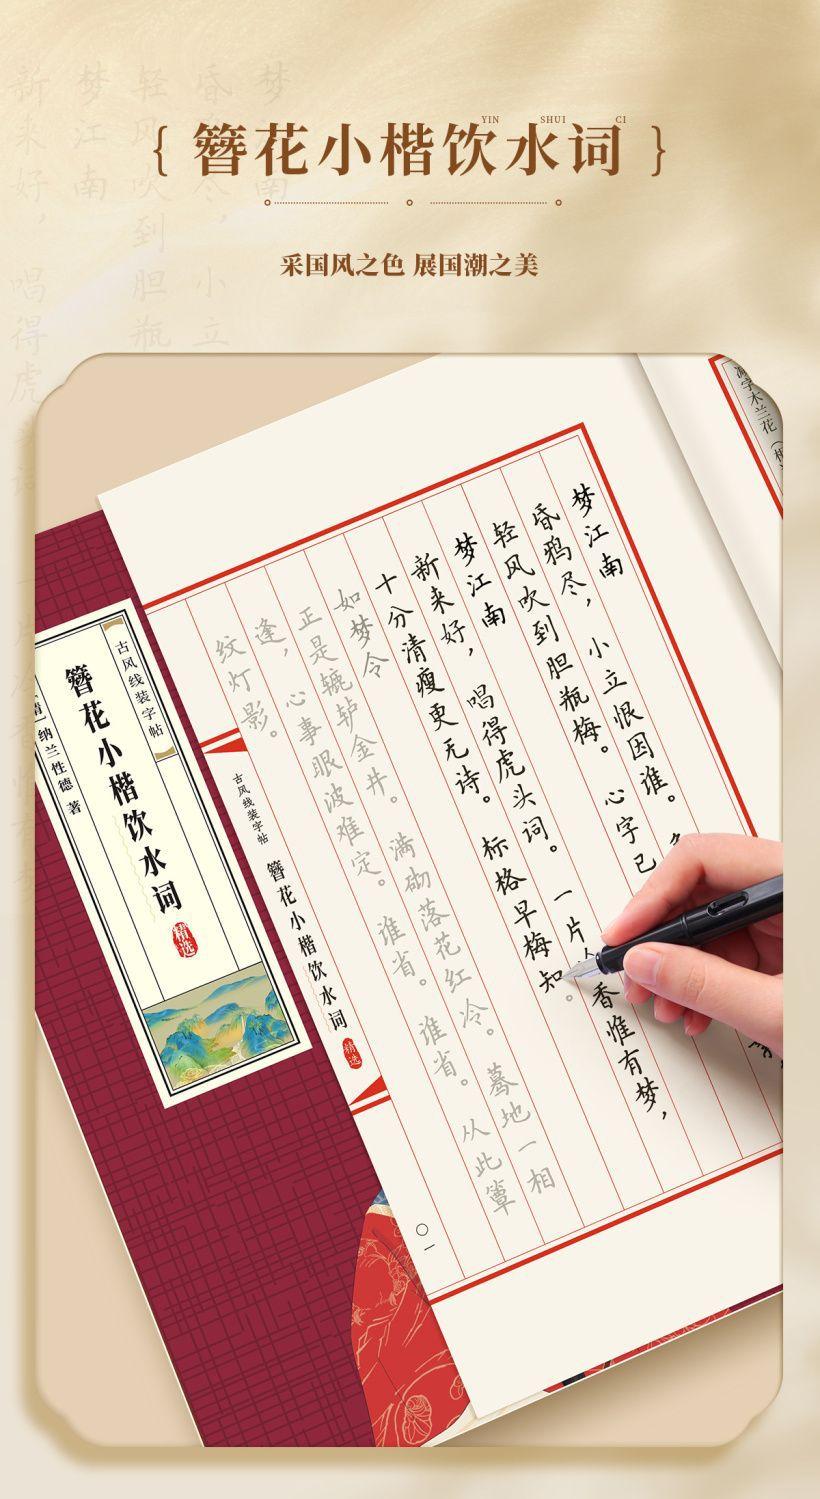 簪花小楷饮水词
YIN SHUI CI
采国风之色 展国潮之美
减字木兰花
梦江南
昏鸦尽，小立恨因谁。
轻风吹到胆瓶梅。心字已
梦江南
新来好，唱得虎头词。一片香惟有梦，
十分清瘦更无诗。标格早梅知。
如梦令
正是辘轳金井。满砌落花红冷。蓦地一相
逢，心事眼波难定。谁省。谁省。从此簟
纹灯影。
古风线装字帖 簪花小楷饮水词 精选
〇一
古风线装字帖
簪花小楷饮水词
精选
纳兰性德 著